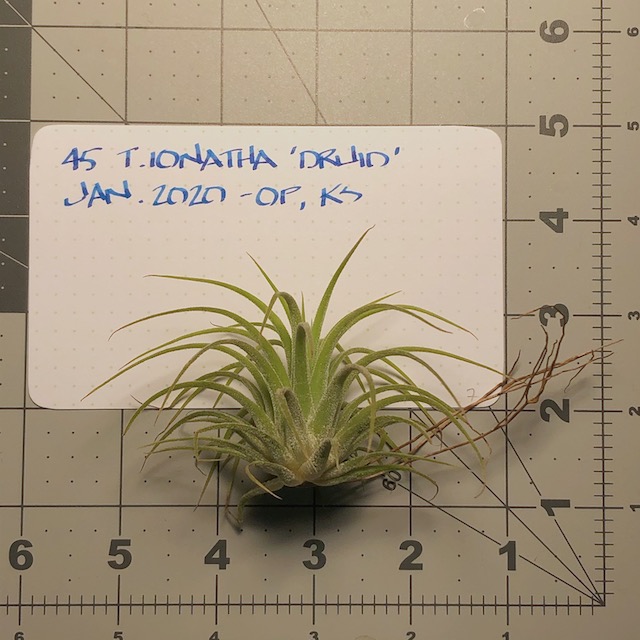 45 T.IONATHA 'DRUID'
JAN. 2020 - OP, KS
6
5
4
3
2
1
60
7
6 5 4 3 2 1
6
5
4
3
2
1
6 5 4 3 2 1